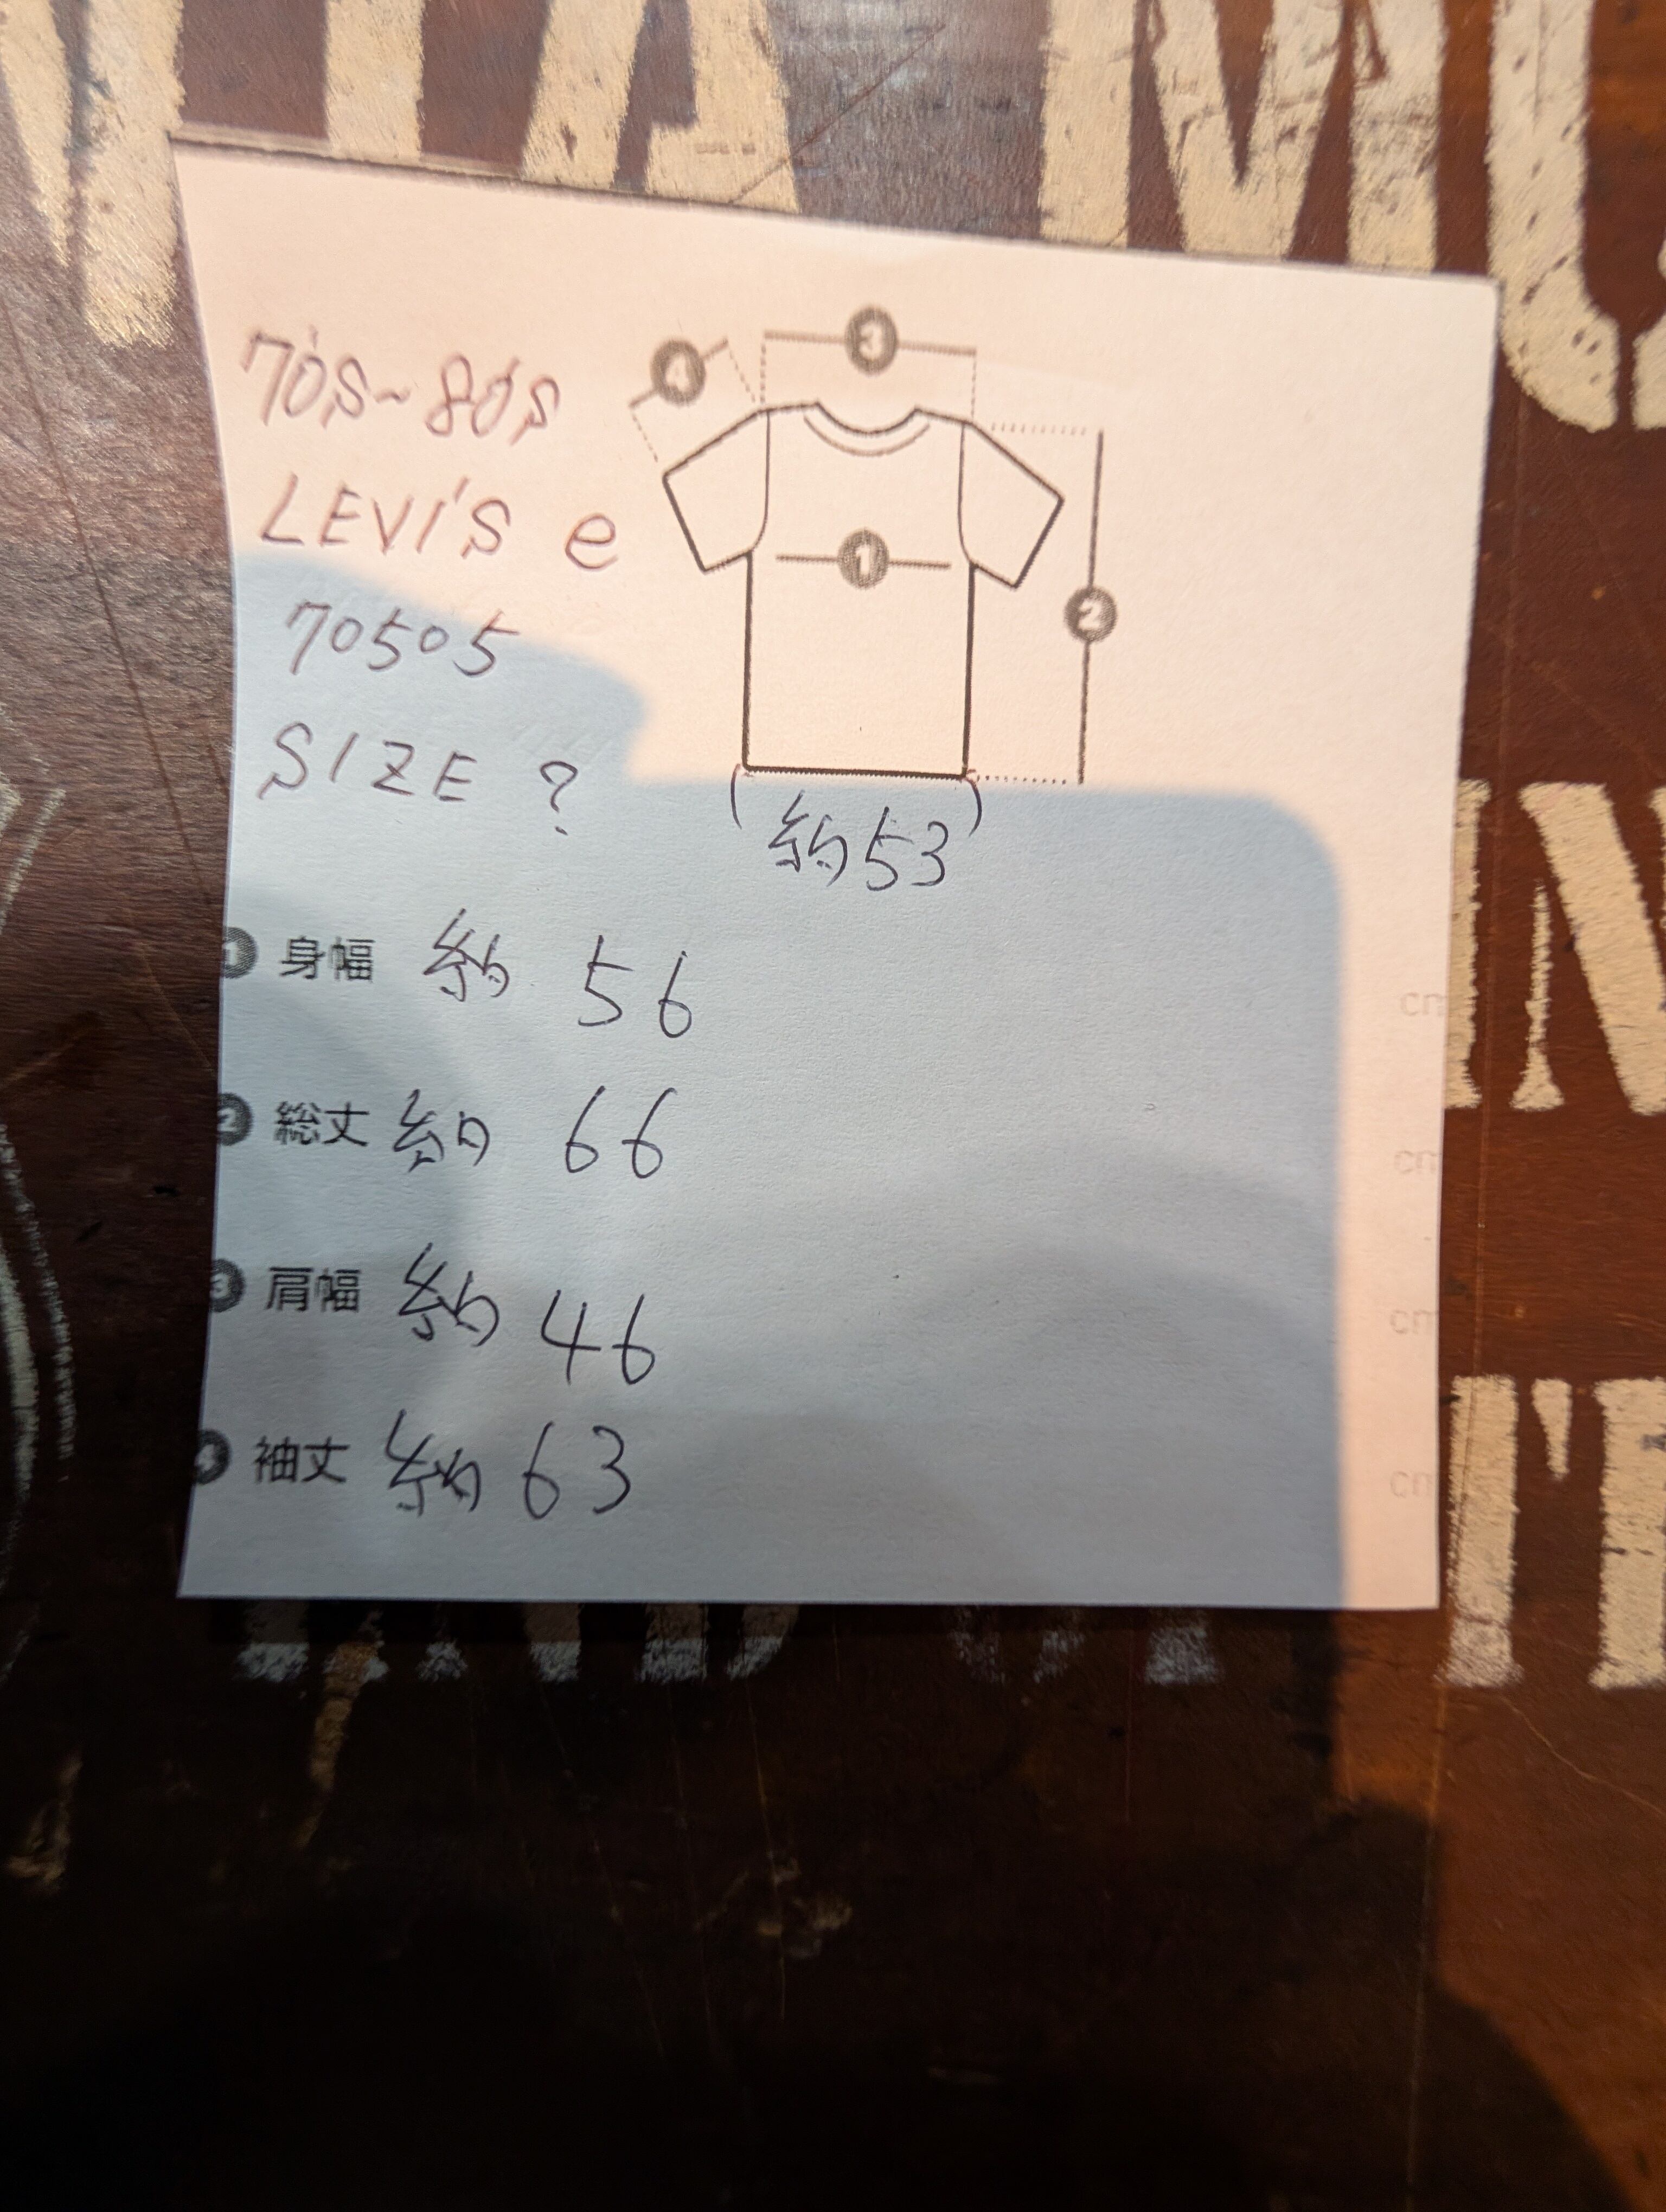 70's~80's
LEVI'S e
70505
SIZE ?
4
3
1
2
(約53)
1 身幅 約 56 cm
2 総丈 約 66 cm
3 肩幅 約 46 cm
4 袖丈 約 63 cm